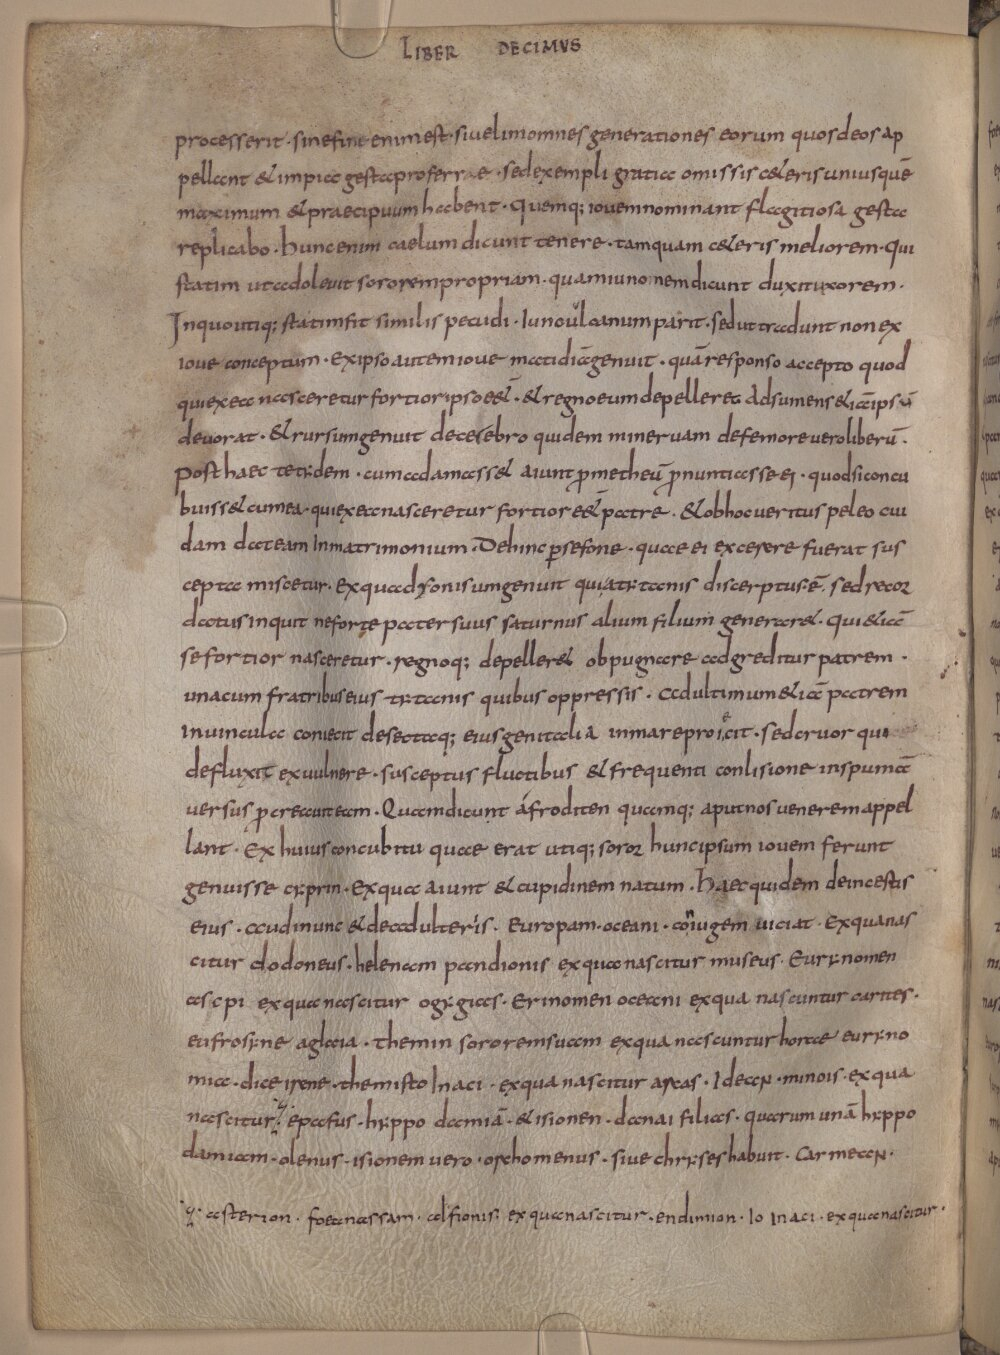 LIBER DECIMVS
processerit · sine fine enim est · si velim omnes generationes eorum quos deos ap
pellant & impia gesta proferrae · sed exempli gratia omissis c&eris unius quē
maximum & praecipuum habent · quemq; iovem nominant flagitiosa gesta
replicabo · hunc enim caelum dicunt tenere · tamquam c&eris meliorem · qui
statim ut adolevit sororem propriam · quam iunonem dicunt duxit uxorem ·
In quo utiq; statim fit similis pecudi · Iuno vulcanum parit · sed ut tradunt non ex
iove conceptum · Ex ipso autem iove matidiā genuit · quā responso accepto quod
qui ex ea nasceretur fortior ipso ess& · & regno eum depelleret Adsumens & iā ipsū
devorat · & rursum genuit de cerebro quidem minervam de femore vero liberū ·
Post haec tetydem · cum adamass& aiunt pmetheū pnuntiasse ei · quod si concu
buiss& cum ea · qui ex ea nasceretur fortior ess& patre · & ob hoc veritus peleo cui
dam dat eam in matrimonium · Dehinc psefone · quae ei ex cerere fuerat sus
cepta miscetur · ex qua dyonisum genuit qui a tytanis discerptus ē · sed recor
datus inquit ne forte pater suus saturnus alium filium generar& · qui & iā
se fortior nasceretur · regnoq; depeller& obpugnare adgreditur patrem ·
una cum fratribus eius tytanis quibus oppressis · ad ultimum & iā patrem
in vincula coniecit desectaq; eius genitalia in mare proiecit · sed cruor qui
defluxit ex vulnere · susceptus fluctibus & frequenti conlisione in spumā
versus pcreavit eam · Quam dicunt afroditen quamq; aput nos venerem appel
lant · Ex huius concubitu quae erat utiq; soror hunc ipsum iovem ferunt
genuisse cyprin · Ex qua aiunt & cupidinem natum · Haec quidem de incestis
eius · audi nunc & de adulteris · Europam · oceani · coniugem viciat · Ex qua nas
citur dodoneus · helenam pandionis ex qua nascitur museus · Eurynomen
ascpi ex qua nascitur ogygias · Erinomen oceani ex qua nascuntur carites ·
eufrosyne aglaia · themin sororem suam ex qua nascuntur horae euryno
mia · dice irene · themisto Inaci · ex qua nascitur arcas · Idean · minois · ex qua
nascitur epafus · hyppo damiā · & isionen · danai filias · quarum unā hyppo
damiam · olenus · isionem vero · orchomenus · sive chryses habuit · Carmean ·
asterion · foenassam · alfionis · ex qua nascitur · endimion · Io Inaci · ex qua nascitur ·